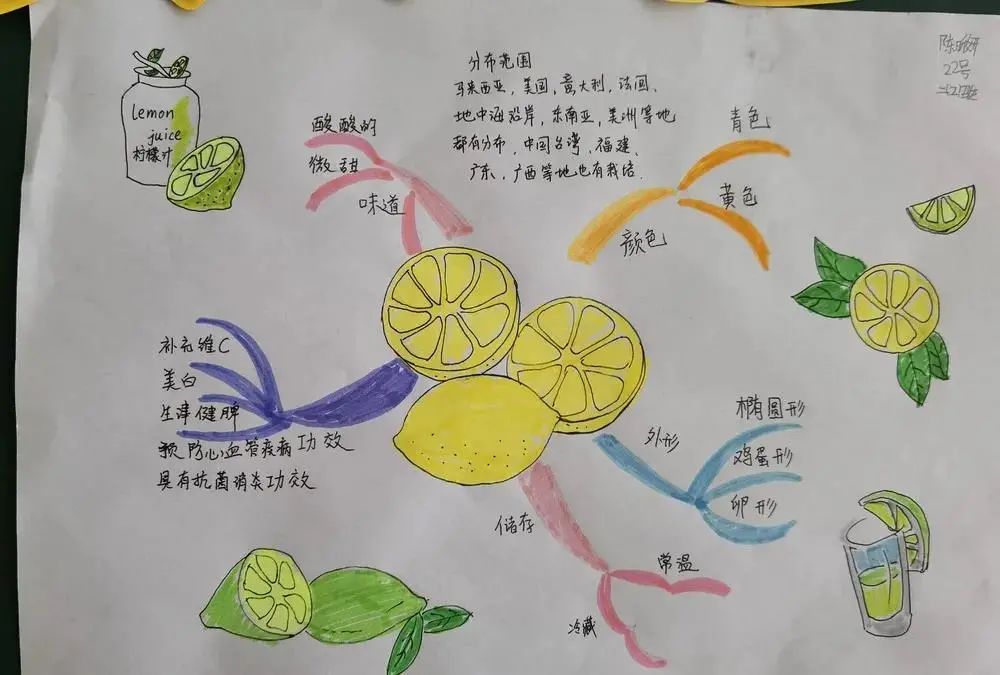 分布范围
马来西亚,美国,意大利,法国,
地中海沿岸,东南亚,美洲等地
都有分布,中国台湾、福建、
广东、广西等地也有栽培.
22号
lemon
juice
柠檬汁
酸酸的
微甜
味道
青色
黄色
颜色
补充维C
美白
生津健脾
预防心血管疾病功效
具有抗菌消炎功效
外形
椭圆形
鸡蛋形
卵形
储存
常温
冷藏